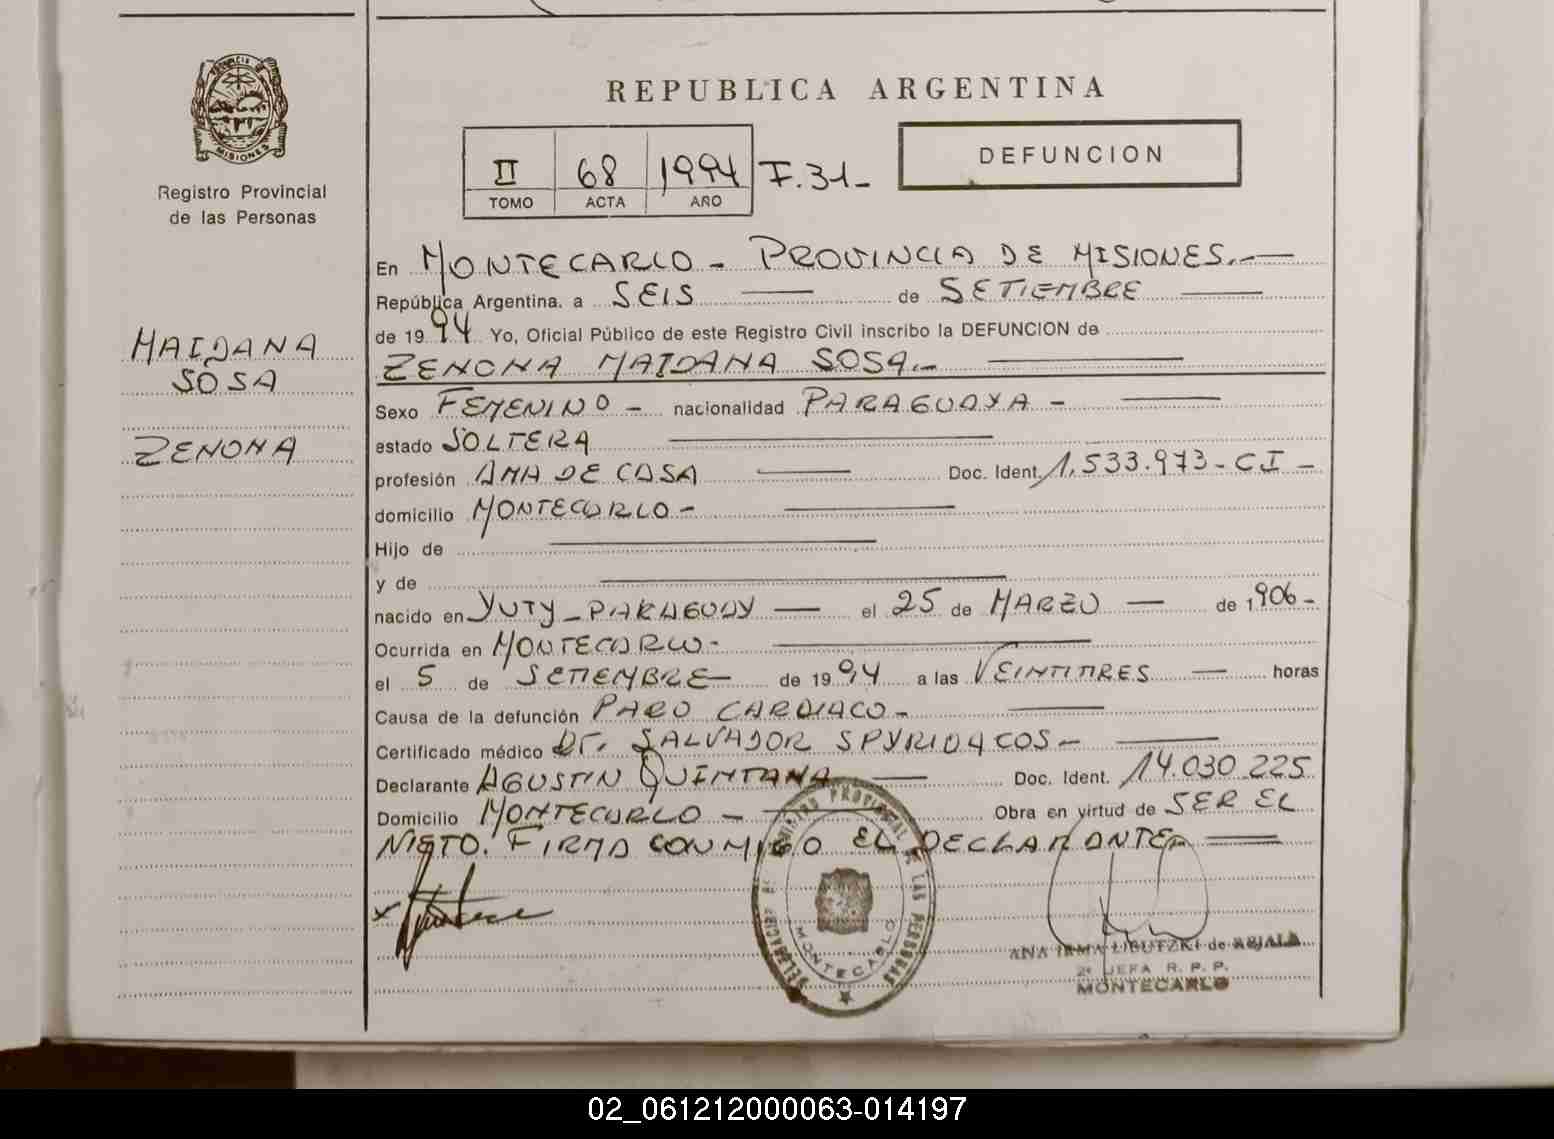 PROVINCIA DE
MISIONES
Registro Provincial
de las Personas
MAIDANA
SOSA
ZENONA
REPUBLICA ARGENTINA
II 68 1994 F.31-
TOMO ACTA AÑO
DEFUNCION
En MONTECARLO - PROVINCIA DE MISIONES.-
República Argentina, a SEIS de SETIEMBRE
de 1994 Yo, Oficial Público de este Registro Civil inscribo la DEFUNCION de
ZENONA MAIDANA SOSA.-
Sexo FEMENINO - nacionalidad PARAGUAYA -
estado SOLTERA
profesión AMA DE CASA Doc. Ident. 1.533.973 - CI -
domicilio MONTECARLO -
Hijo de
y de
nacido en YUTY - PARAGUAY el 25 de MARZO de 1906 -
Ocurrida en MONTECARLO -
el 5 de SETIEMBRE de 1994 a las VEINTITRES horas
Causa de la defunción PARO CARDIACO -
Certificado médico Dr. SALVADOR SPYRIDACOS -
Declarante AGUSTIN QUINTANA Doc. Ident. 14.030.225
Domicilio MONTECARLO - Obra en virtud de SER EL
NIETO. FIRMA CONMIGO EL DECLARANTE
DELEGACION DE REGISTRO PROVINCIAL DE LAS PERSONAS
MONTECARLO
ANA IRMA LIBUTZKI de REJALA
2ª JEFA R. P. P.
MONTECARLO
02_061212000063-014197